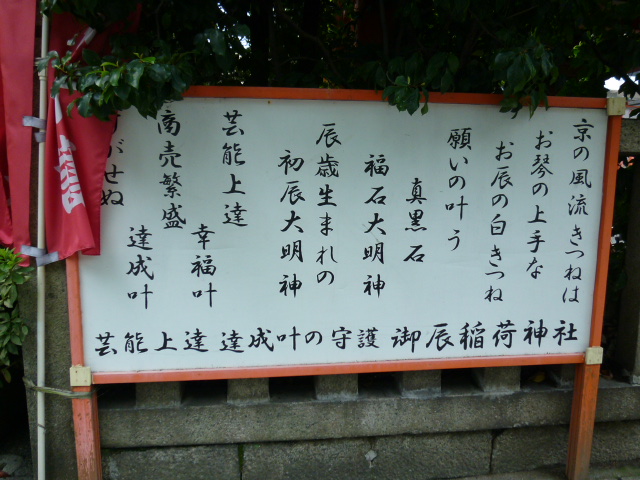 京の風流きつねは
お琴の上手な
お辰の白きつね
願いの叶う
真黒石
福石大明神
辰歳生まれの
初辰大明神
芸能上達
幸福叶
商売繁盛
達成叶
がせぬ
芸能上達 達成叶の守護 御辰稲荷神社